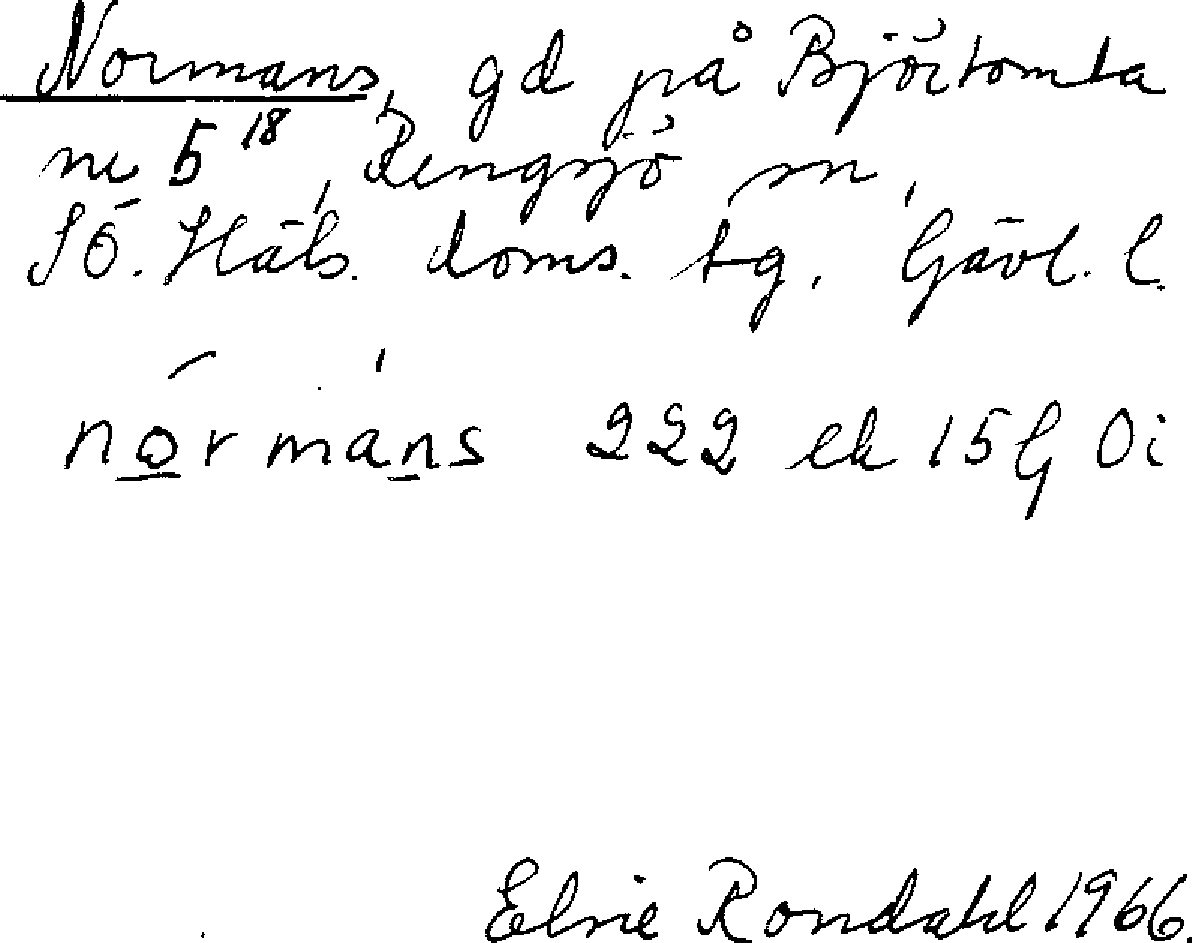 Normans, gd på Björtomta
nr 5 18, Rengsjö sn,
SÖ. Häls. doms. tg. Gävl. l.
nормans 222 ek 15 G Oi
Elsie Rondahl 1966.